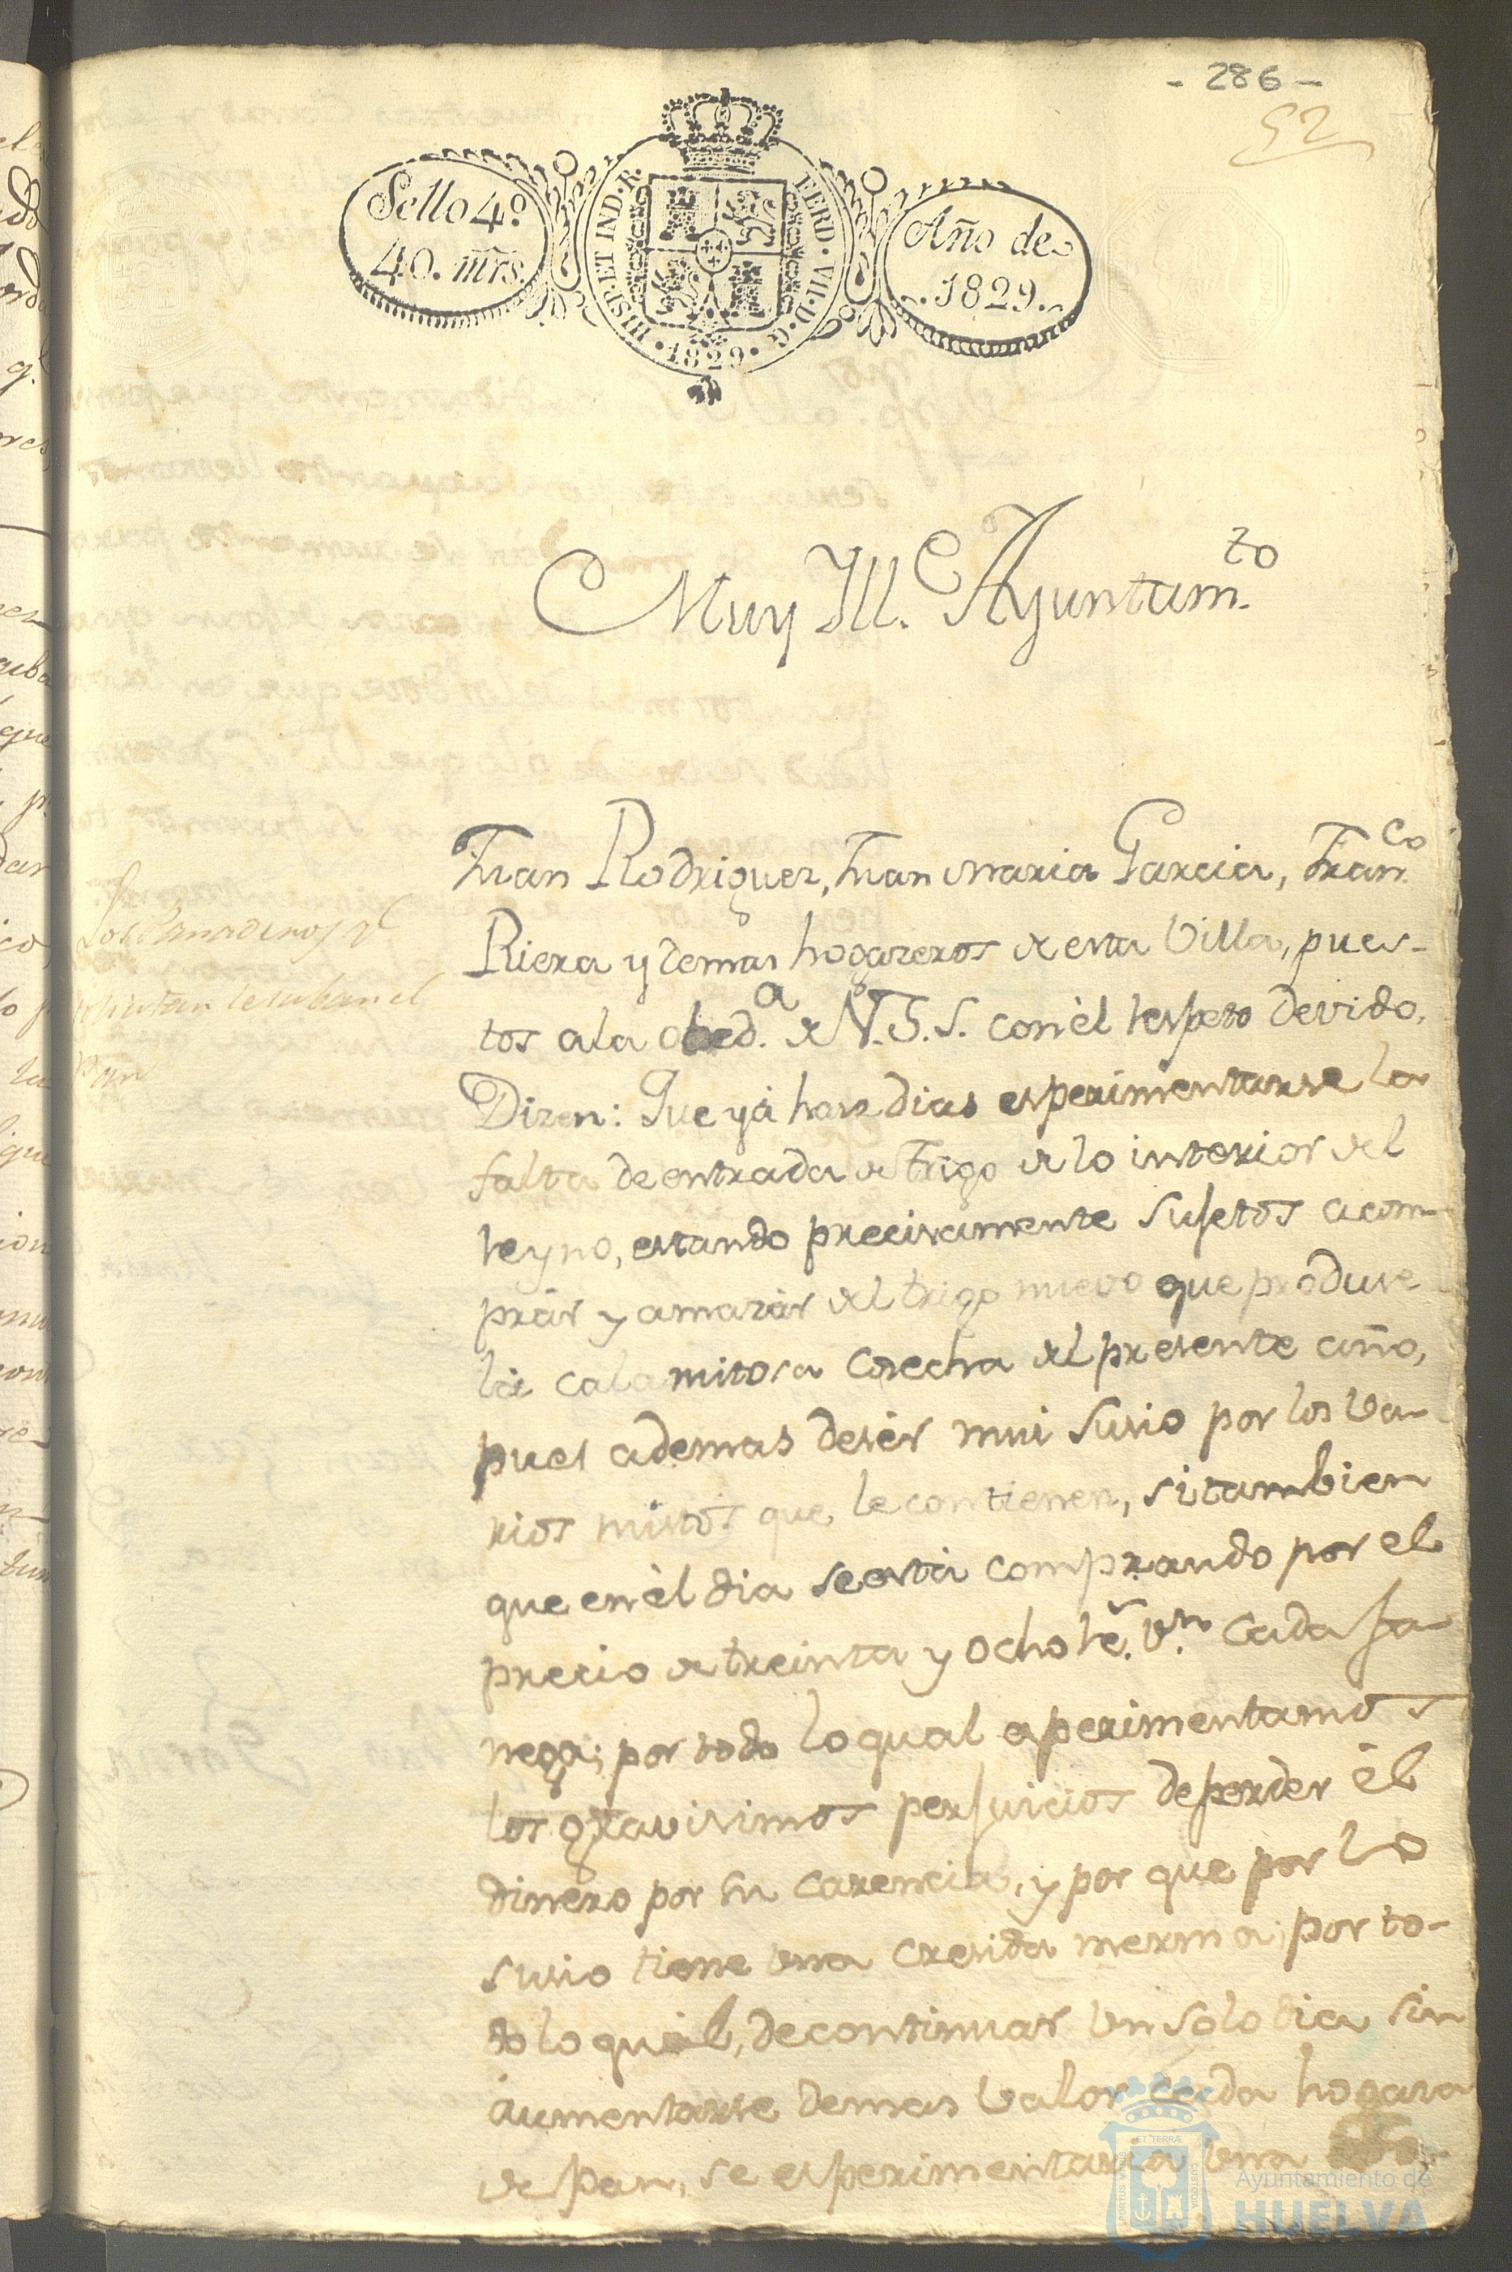 - 286 -
52
Sello 4º
40. mrs.
HISP. ET IND. R. FERD. VII. D. G. 1829
Año de
1829.
Muy Ill.e Ayuntam.to
Juan Rodriguez, Juan Maria Garcia, Fran.co
Riera y demas hogazeros de esta Villa, pues-
tos a la obed.a de V.S.S. con èl respeto devido,
Dizen: Que yá haze dias esperimentarse la
falta de entrada de trigo de lo interior del
reyno, estando precisamente sujetos a com-
prár y amazár del trigo nuevo que produse
la calamitosa cosecha del presente año,
pues ademas de sér mui susio por los va-
rios mistos que le contienen, si tambien
que en èl dia se está comprando por el
precio de treinta y ocho rs. vn. cada fa-
nega; por todo lo qual esperimentamos
los gravisimos perjuicios de perder èl
dinero por su carencia, y por que por lo
susio tiene una cresida merma; por to-
do lo quál, de continuar un solo dia sin
aumentarse demas valor cada hogasa
de pan, se esperimentaria una
Los Panaderos
solicitan se suba en el
Pan
Ayuntamiento de
HUELVA